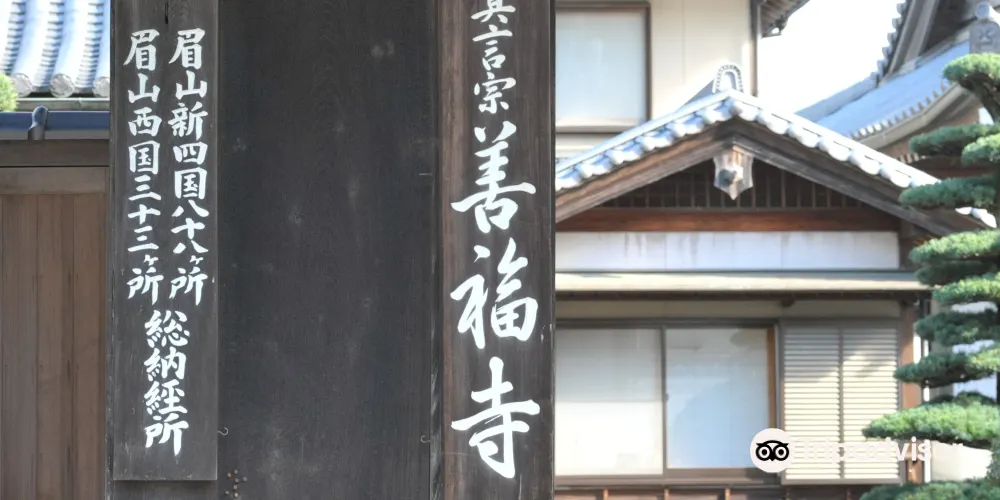 真言宗
善福寺
眉山新四国八十八ヶ所
眉山西国三十三ヶ所
総納経所
Tripadvisor